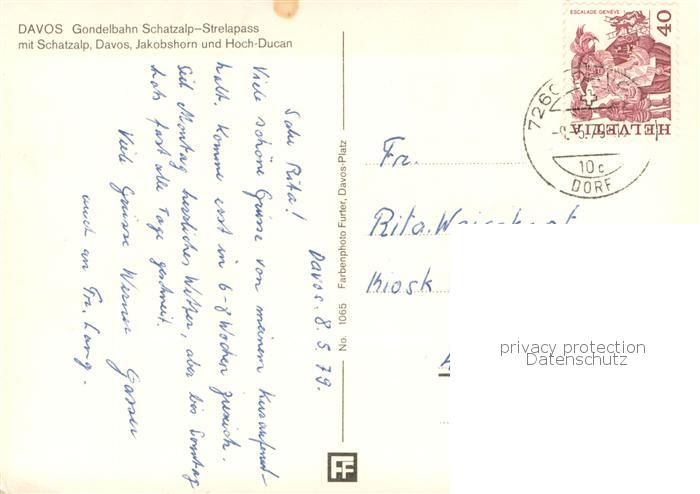 DAVOS Gondelbahn Schatzalp–Strelapass
mit Schatzalp, Davos, Jakobshorn und Hoch-Ducan
Davos. 8. 5. 79.
Salü Rita!
Viele schöne Grüsse von meinem Kuraufent-
halt. Komme erst in 6-8 Wochen zurück.
Seit Montag herrliches Wetter, aber bis Sonntag
hats fast alle Tage geschneit.
Viele Grüsse Werner Gasser
auch an Fr. Lang.
No. 1065 Farbenphoto Furter, Davos-Platz
FF
Fr.
Rita
Kiosk
ESCALADE GENÈVE
40
HELVETIA
7260
10 c
DORF
privacy protection
Datenschutz